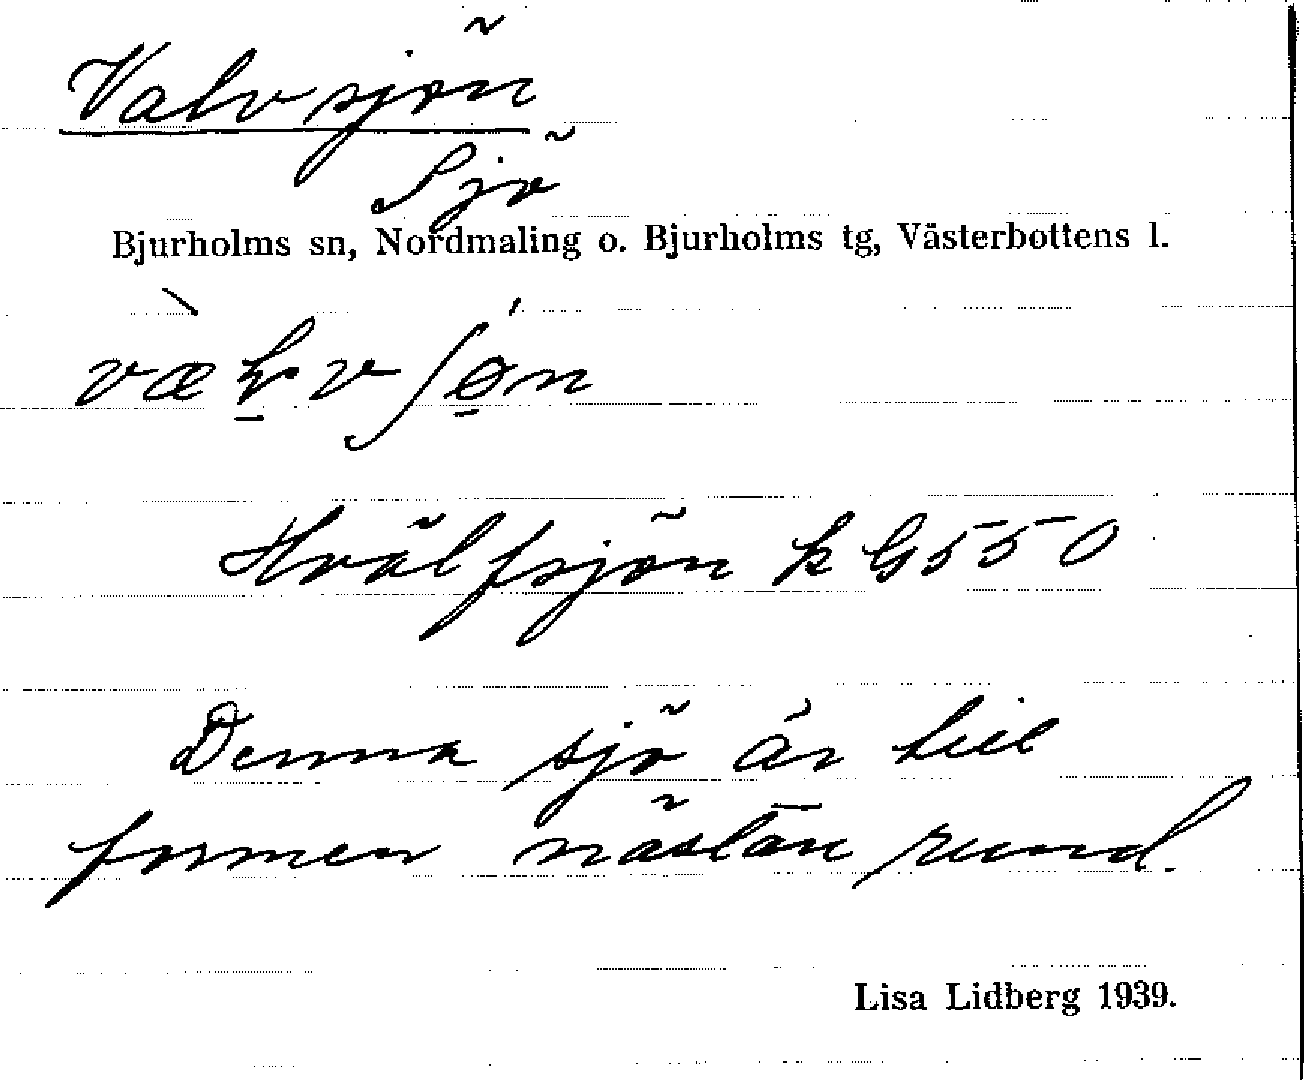 Valvsjön
Sjö
Bjurholms sn, Nordmaling o. Bjurholms tg, Västerbottens l.
Hvälfsjön k G550
Denna sjö är till
formen nästan rund.
Lisa Lidberg 1939.